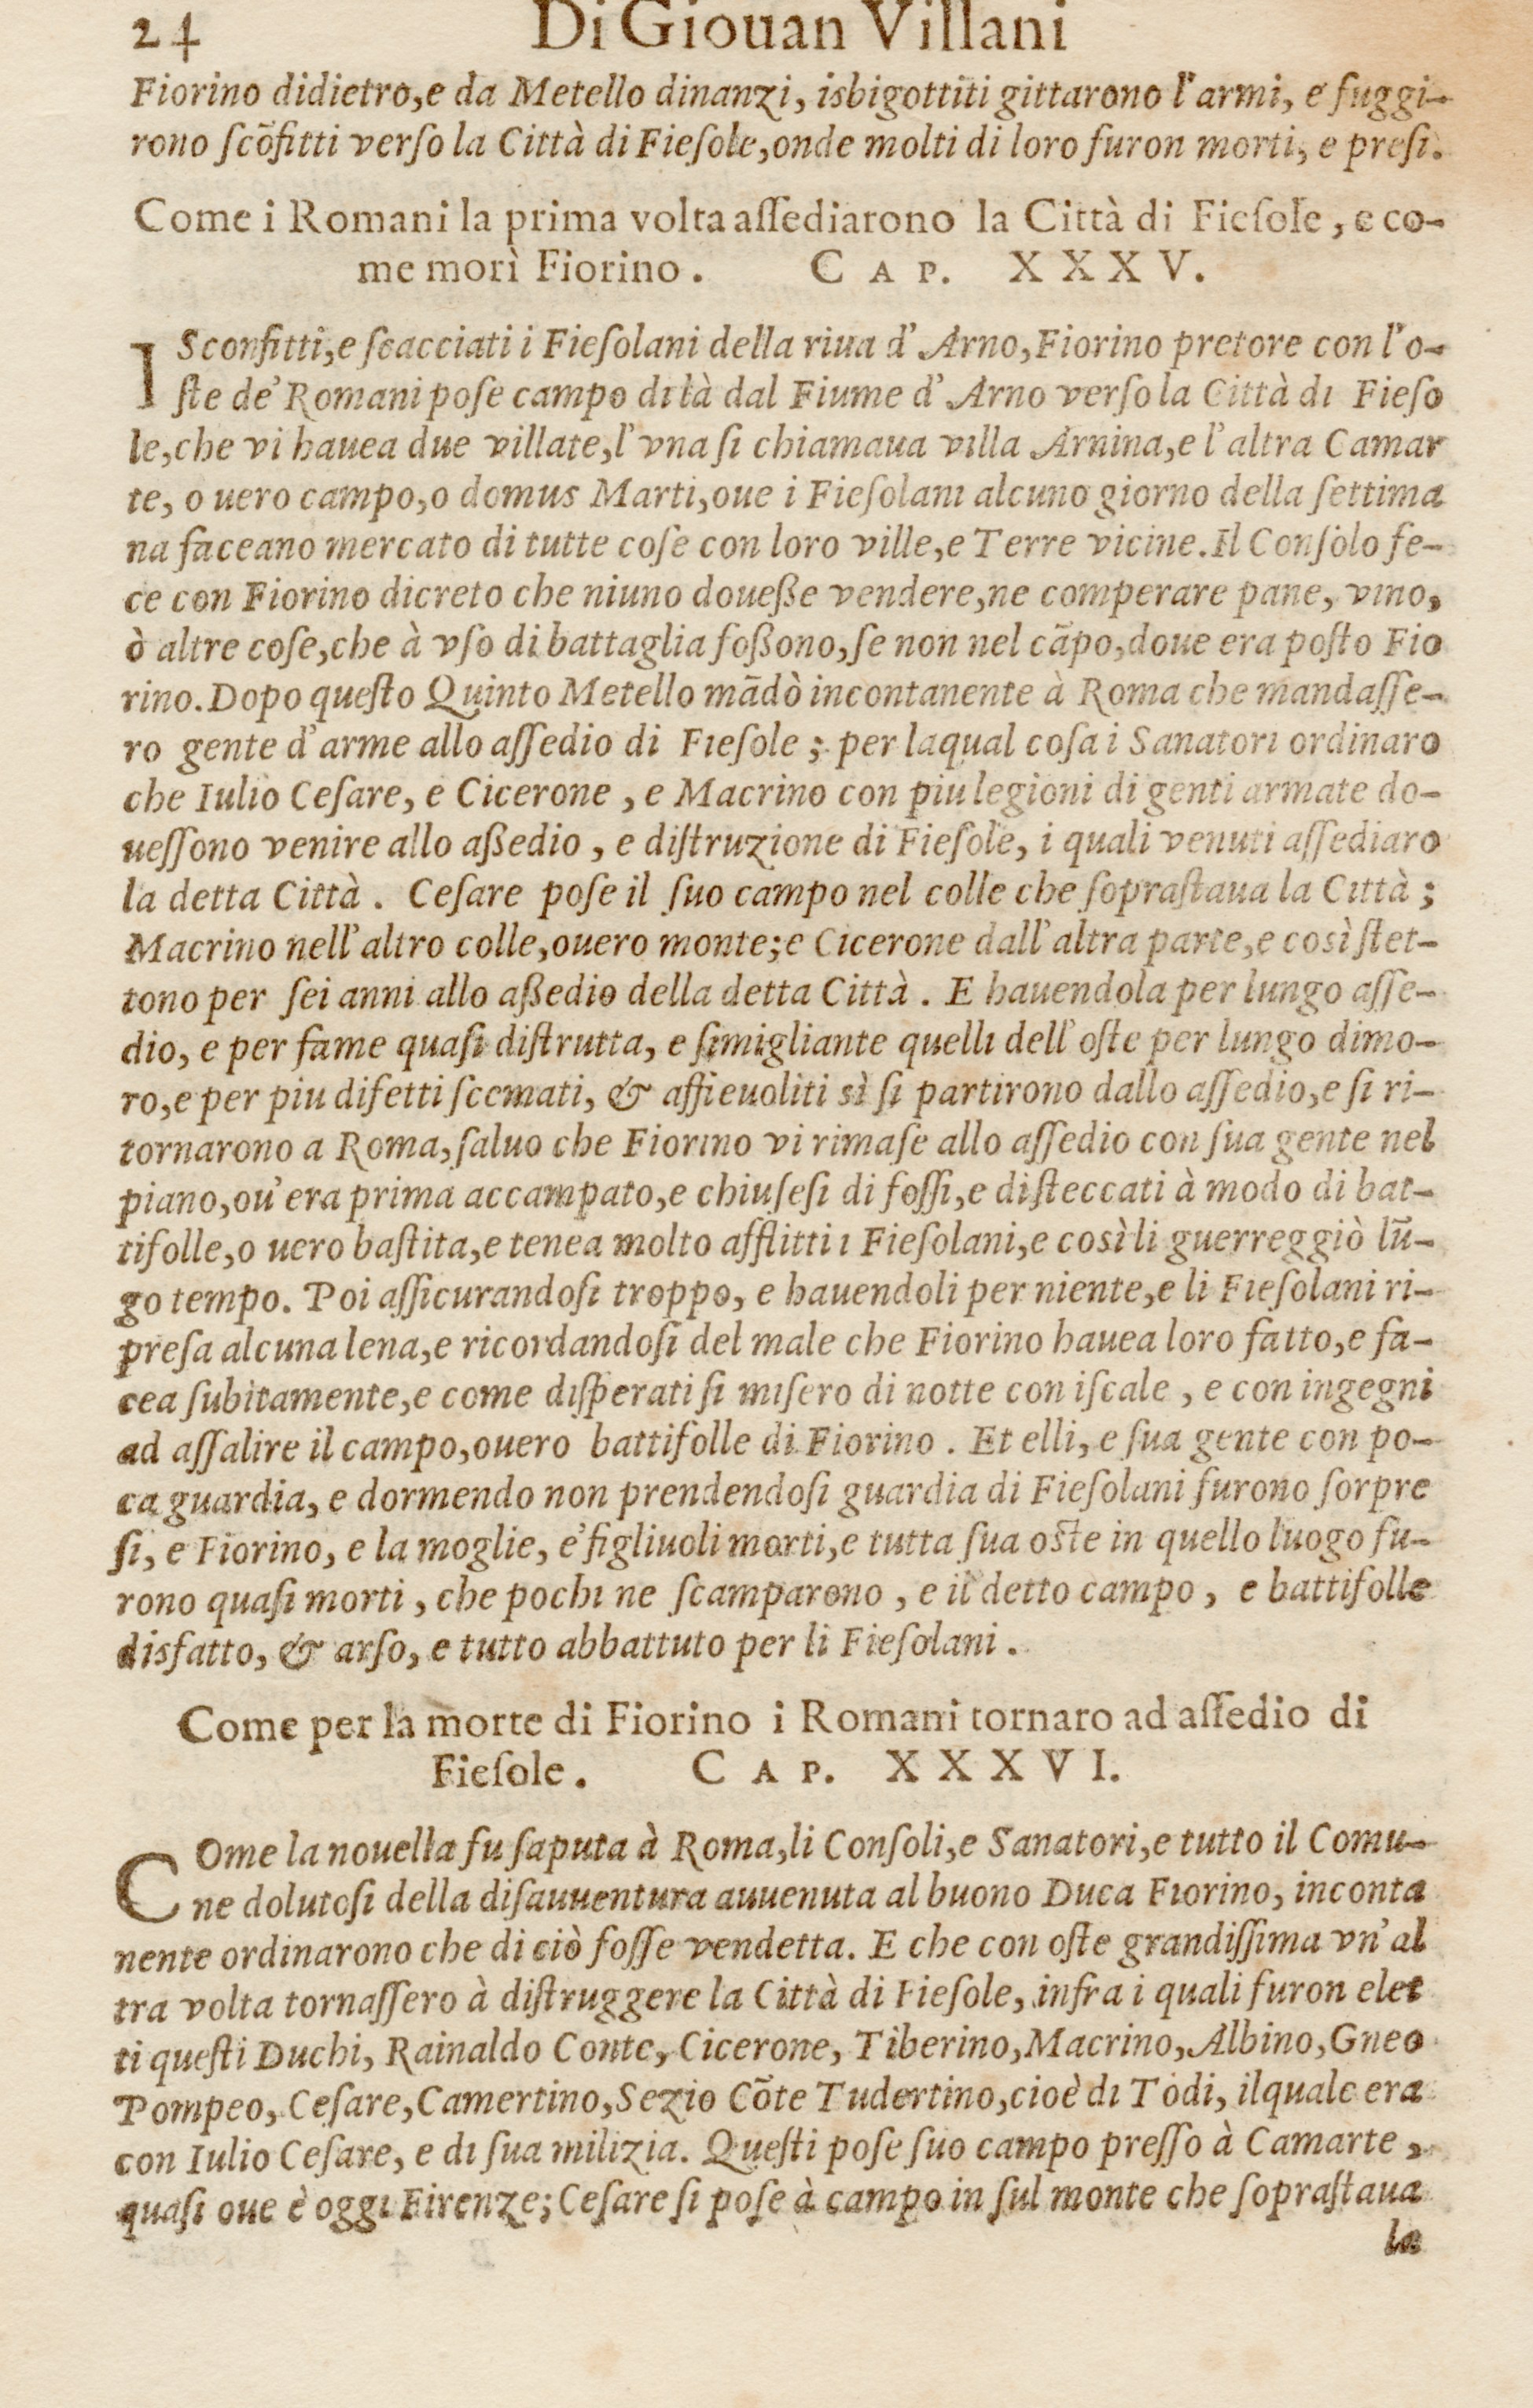 24 Di Giouan Villani
Fiorino didietro,e da Metello dinanzi, isbigottiti gittarono l'armi, e fuggi-
rono scõfitti verso la Città di Fiesole,onde molti di loro furon morti, e presi.
Come i Romani la prima volta assediarono la Città di Fiesole, e co-
me morì Fiorino. CAP. XXXV.
ISconfitti,e scacciati i Fiesolani della riua d'Arno,Fiorino pretore con l'o-
ste de'Romani pose campo di là dal Fiume d'Arno verso la Città di Fieso
le,che vi hauea due villate,l'vna si chiamaua villa Arnina,e l'altra Camar
te, o uero campo,o domus Marti,oue i Fiesolani alcuno giorno della settima
na faceano mercato di tutte cose con loro ville,e Terre vicine.Il Consolo fe-
ce con Fiorino dicreto che niuno douesse vendere,ne comperare pane, vino,
ò altre cose,che à vso di battaglia fossono,se non nel cãpo,doue era posto Fio
rino.Dopo questo Quinto Metello mãdò incontanente à Roma che mandasse-
ro gente d'arme allo assedio di Fiesole; per laqual cosa i Sanatori ordinaro
che Iulio Cesare, e Cicerone, e Macrino con piu legioni di genti armate do-
uessono venire allo assedio, e distruzione di Fiesole, i quali venuti assediaro
la detta Città. Cesare pose il suo campo nel colle che soprastaua la Città;
Macrino nell'altro colle,ouero monte;e Cicerone dall'altra parte,e così stet-
tono per sei anni allo assedio della detta Città. E hauendola per lungo asse-
dio, e per fame quasi distrutta, e simigliante quelli dell'oste per lungo dimo-
ro,e per piu difetti scemati, & affieuoliti sì si partirono dallo assedio,e si ri-
tornarono a Roma,saluo che Fiorino vi rimase allo assedio con sua gente nel
piano,ou'era prima accampato,e chiusesi di fossi,e disteccati à modo di bat-
tifolle,o uero bastita,e tenea molto afflitti i Fiesolani,e così li guerreggiò lũ-
go tempo. Poi assicurandosi troppo, e hauendoli per niente,e li Fiesolani ri-
presa alcuna lena,e ricordandosi del male che Fiorino hauea loro fatto,e fa-
cea subitamente,e come disperati si misero di notte con iscale, e con ingegni
ad assalire il campo,ouero battifolle di Fiorino. Et elli, e sua gente con po-
ca guardia, e dormendo non prendendosi guardia di Fiesolani furono sorpre
si, e Fiorino, e la moglie, e'figliuoli morti,e tutta sua oste in quello luogo fu-
rono quasi morti, che pochi ne scamparono, e il detto campo, e battifolle
disfatto, & arso, e tutto abbattuto per li Fiesolani.
Come per la morte di Fiorino i Romani tornaro ad assedio di
Fiesole. CAP. XXXVI.
COme la nouella fu saputa à Roma,li Consoli,e Sanatori,e tutto il Comu-
ne dolutosi della disauuentura auuenuta al buono Duca Fiorino, inconta
nente ordinarono che di ciò fosse vendetta. E che con oste grandissima vn'al
tra volta tornassero à distruggere la Città di Fiesole, infra i quali furon elet
ti questi Duchi, Rainaldo Conte, Cicerone, Tiberino,Macrino,Albino,Gneo
Pompeo, Cesare,Camertino,Sezio Cõte Tudertino,cioè di Todi, ilquale era
con Iulio Cesare, e di sua milizia. Questi pose suo campo presso à Camarte,
quasi oue è oggi Firenze;Cesare si pose à campo in sul monte che soprastaua
la